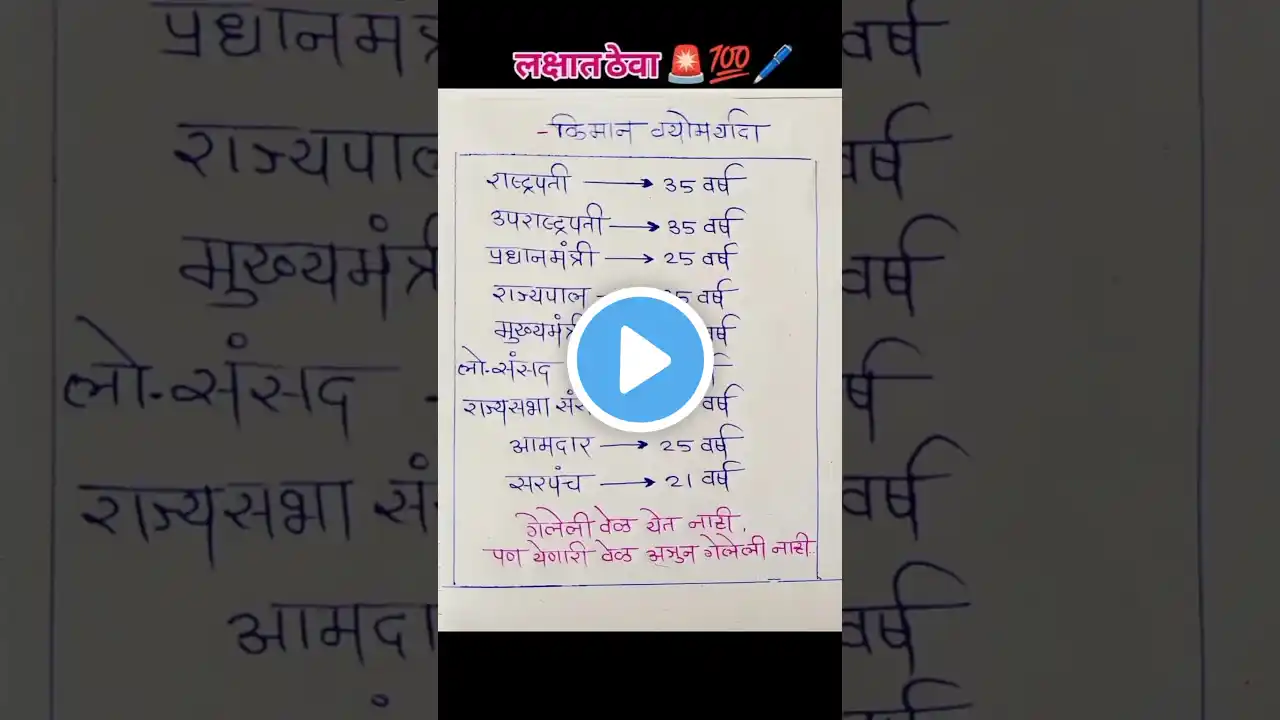 लक्षात ठेवा 🚨💯🖊️
-किमान वयोमर्यादा
राष्ट्रपती → 35 वर्ष
उपराष्ट्रपती → 35 वर्ष
प्रधानमंत्री → 25 वर्ष
राज्यपाल वर्ष
मुख्यमंत्री वर्ष
लो.संसद
राज्यसभा वर्ष
आमदार → 25 वर्ष
सरपंच → 21 वर्ष
गेलेली वेळ येत नाही.
पण येणारी वेळ अजुन गेलेली नाही..